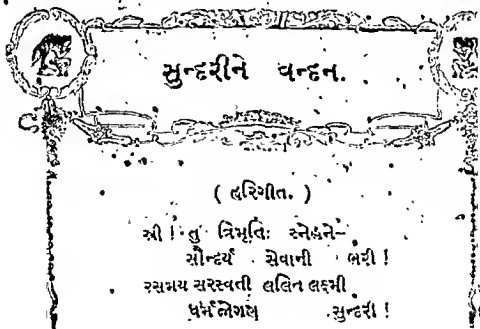 સુન્દરીને વન્દન.
( હરિગીત. )
સ્ત્રી ! તું ત્રિમૂર્તિઃ સ્નેહને–
સૌન્દર્ય સેવાની ભરી !
રસમય સરસ્વતી લલિત લક્ષ્મી
સુન્દરી !